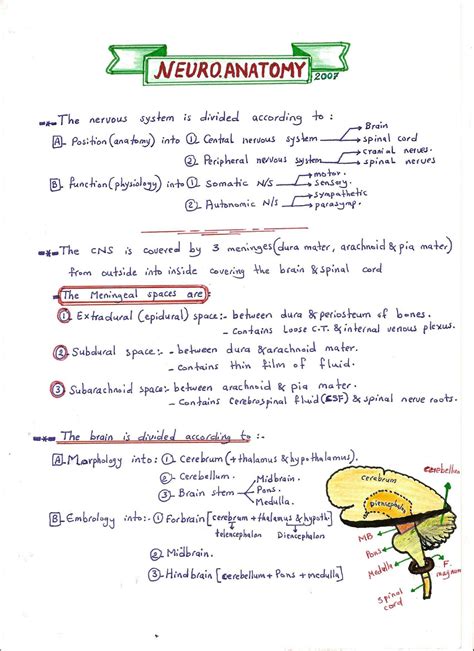 NEURO.ANATOMY 2007
The nervous system is divided according to :
A- Position (anatomy) into ① Central nervous system → Brain
→ spinal cord
② Peripheral nervous system → cranial nerves.
→ spinal nerves
B- function (physiology) into ① Somatic N/S → motor.
→ sensory.
② Autonomic N/S → sympathetic
→ parasymp.
The CNS is covered by 3 meninges (dura mater, arachnoid & pia mater)
from outside into inside covering the brain & spinal cord
The Meningeal spaces are:
① Extradural (epidural) space:- between dura & periosteum of bones.
- contains Loose C.T. & internal venous plexus.
② Subdural space:- - between dura & arachnoid mater.
- contains thin film of fluid.
③ Subarachnoid space:- between arachnoid & pia mater.
- Contains Cerebrospinal fluid (CSF) & spinal nerve roots.
The brain is divided according to :-
A- Morphology into: ① Cerebrum (+ thalamus & hypothalamus).
② Cerebellum.
③ Brain stem Midbrain.
Pons.
Medulla.
B- Embrology into:- ① Forbrain [cerebrum + thalamus & hypoth]
telencephalon Diencephalon
② Midbrain.
③ Hindbrain [cerebellum + Pons + medulla]
cerebellum
Cerebrum
Diencephalon
MB
Pons
Medulla
F. magnum
Spinal cord